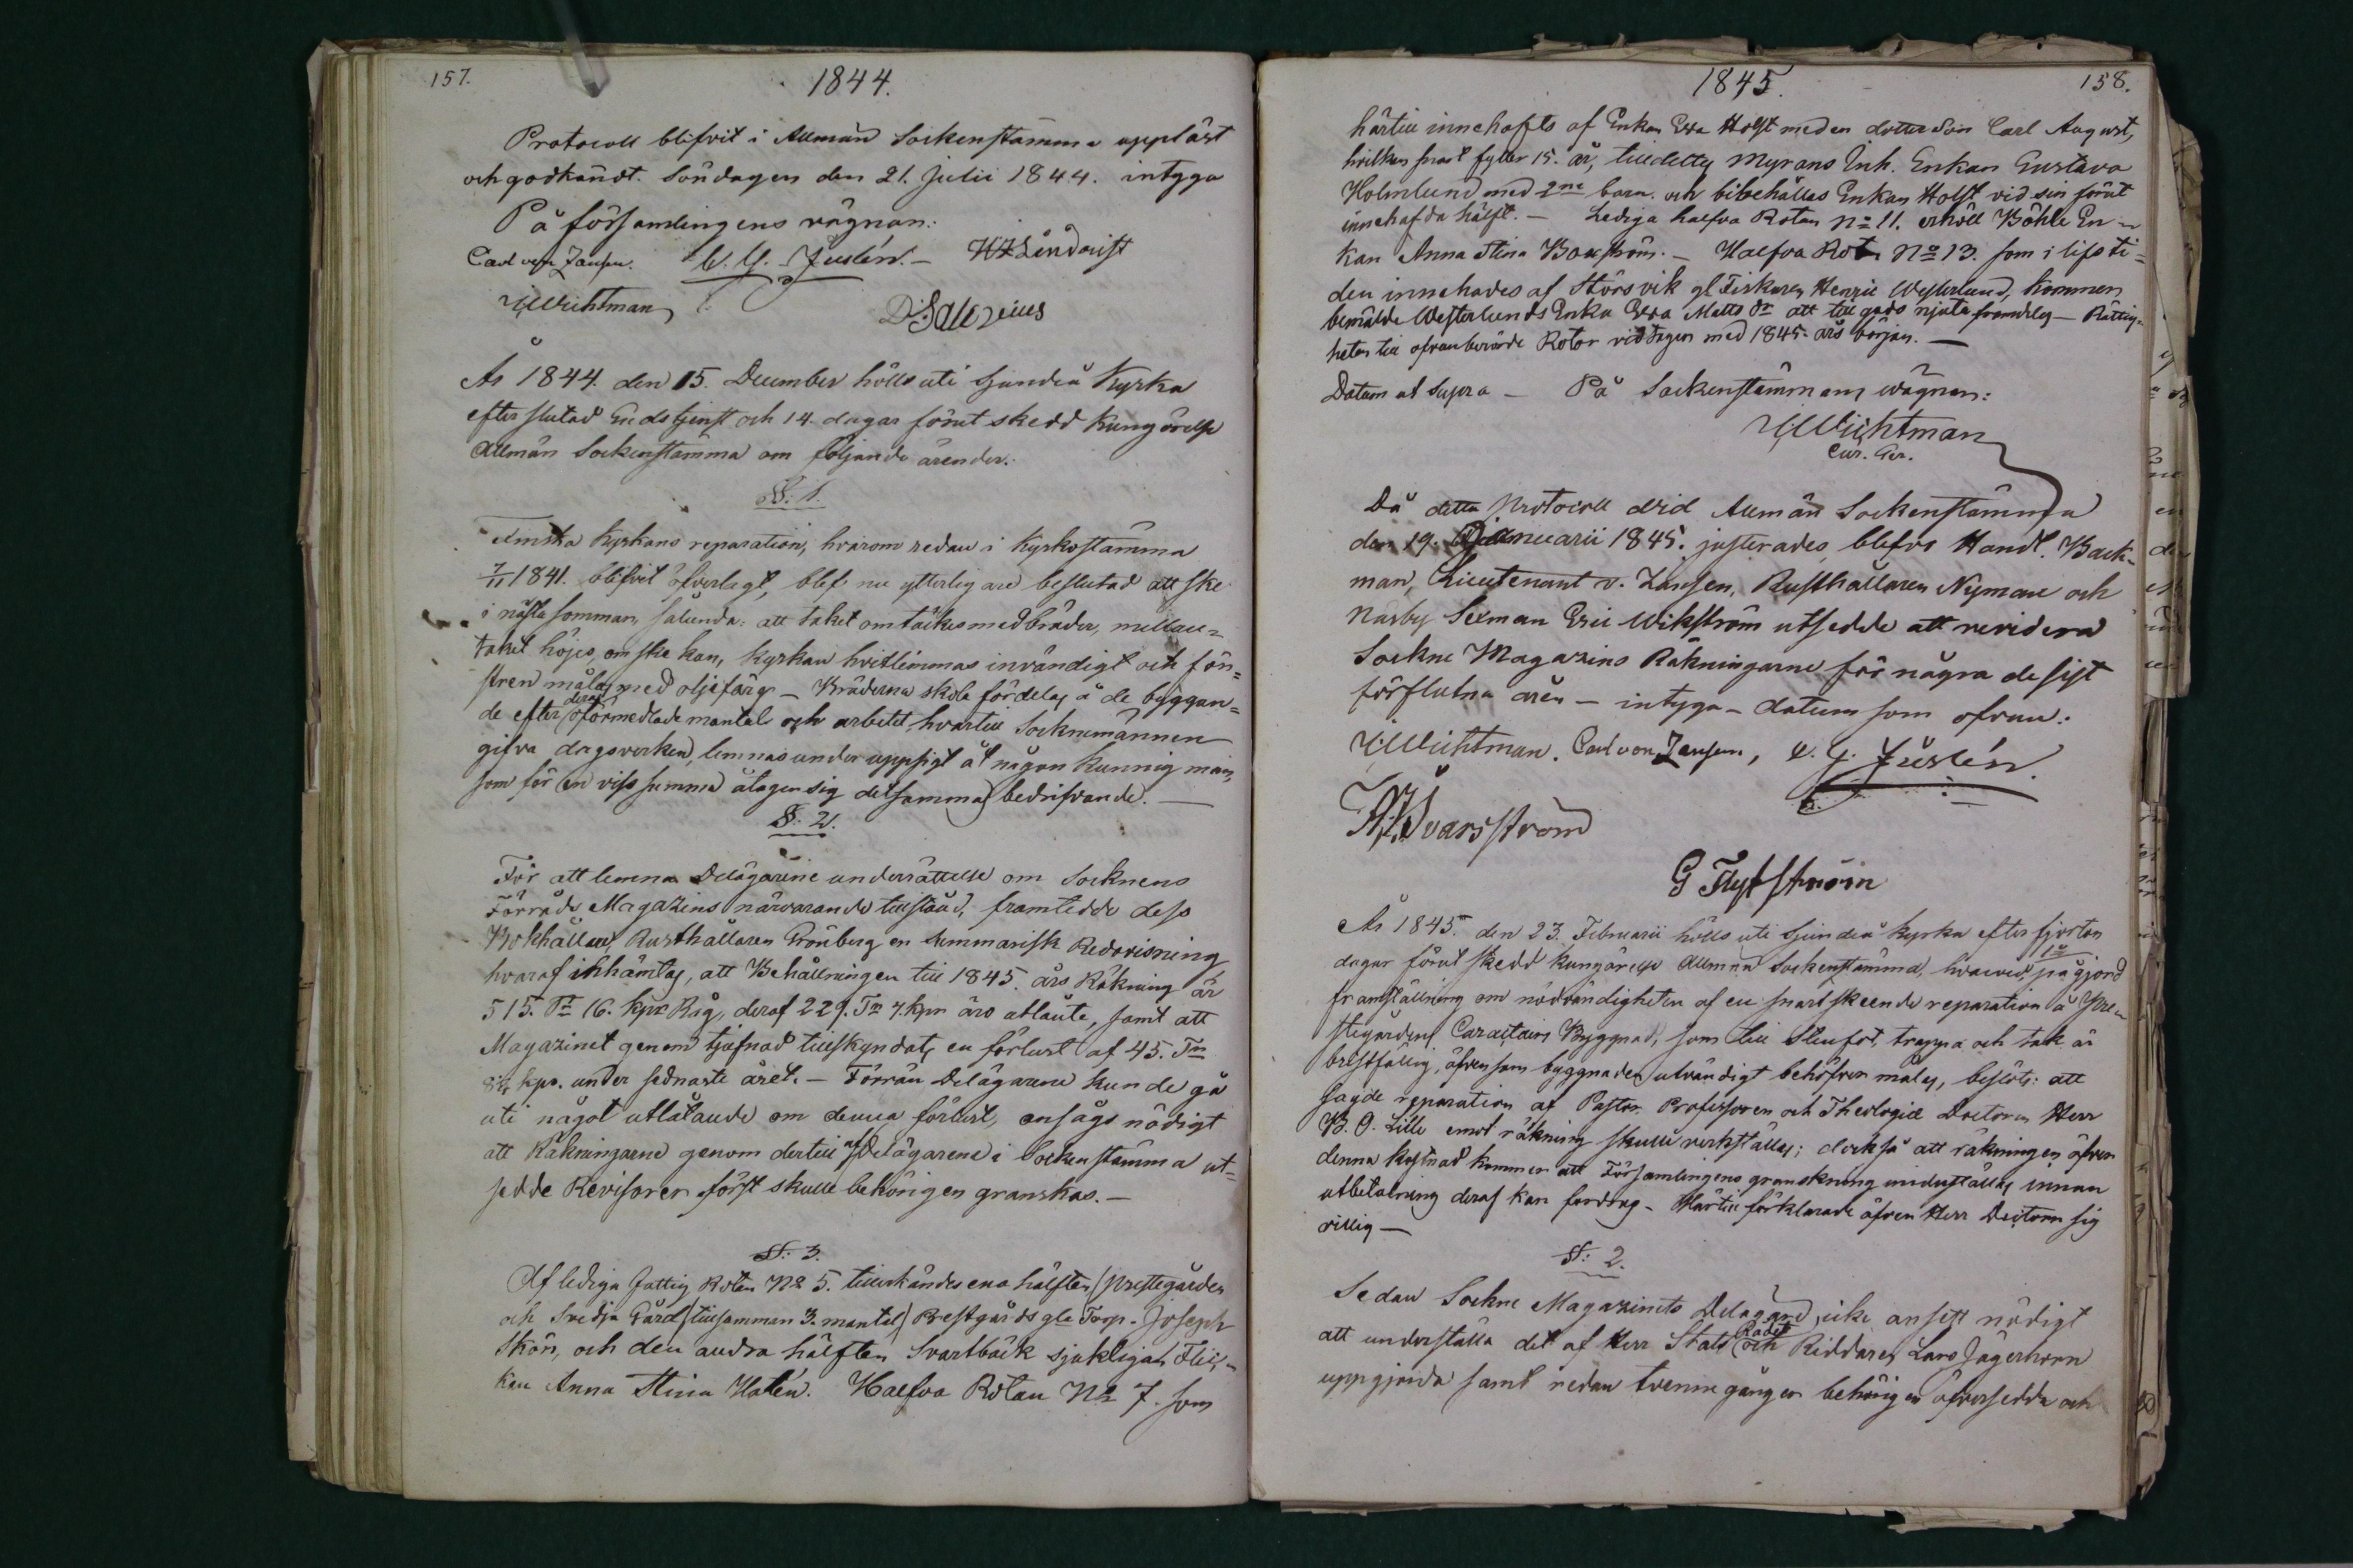 157.
1844.
Protocoll blifvit i Allmän Sockenstämma uppläst
och godkändt. Söndagen den 21. Julii 1844. intyga
På församlingens vägnar:
Carl von Jansen. C. G. Juslén. H Lindqvist
Wichtman
År 1844. den 15. December hölls uti Sjundeå Kyrka
efter slutad Gudstjenst och 14. dagar förut skedd Kungörelse
Allmän Sockenstämma om följande ärender.
§. 1.
Kyrkans reparation, hvarom redan i Kyrkostämma
7/11 1841. blifvit öfverlagt, blef nu ytterligare beslutad att ske
i nästa sommar, sålunda: att taket omtäckes med bräder, mellan=
taket höjes, om ske kan, Kyrkan hvitlimmas invändigt och fön=
stren målas med oljefärg – Bräderna skola fördelas å de byggan=
de efter deras oförmedlade mantal och arbetet, hvartill Socknemännen
gifva dagsverken, lemnas under uppsigt åt någon kunnig man,
som för en viss summa åtager sig detsammas bedrifvande. —
§. 2.
För att lemna Delägarene underrättelse om Socknens
Förråds Magazins närvarande tillstånd, framtedde dess
Bokhållare Rusthållaren Grönberg en summarisk Redovisning
hvaraf inhämtas, att Behållningen till 1845. års Räkning är
515. Tr 16. kpr Råg, deraf 229. Tr 7. kpr äro utlånte, samt att
Magazinet genom tjufnad tillskyndats en förlust af 45. Tr
kpr. under sednaste året. – Förrän Delägarene kunde gå
uti något utlåtande om denna förlust, ansågs nödigt
att Räkningarne genom dertill af Delägarene i Sockenstämma ut=
sedde Revisorer först skulle behörigen granskas. —
§. 3.
Af lediga Fattig Roten No 5. tillerkändes ena hälften (Prestegården
och Svedja Gård tillsamman 3. mantal) Prestgårds gla Torp. Joseph
Skön, och den andra hälften Svartbäck sjukliga Flic=
kan Anna Stina Halén. Halfva Rotan No 7. som
1845.
158.
härtill innehafts af Enkan Eva Holst med en dotter Son Carl August,
hvilken snart fyller 15. år, tilldelts Myrans Inh. Enkan Gustava
Holmlund med 2ne barn. och bibehålles Enkan Holst vid sin förut
innehafda hälft. — Lediga halfva Rotan No 11. erhöll Böhle En=
kan Anna Stina Boxström. – Halfva Rotn No 13. som i lifsti=
den innehades af Störsvik gl Fiskaren Henric Westerlund, kommer
bemälde Westerlunds Enka Eva Matts dr att till godo njuta framdeles — Rättig=
heten till ofvanberörde Rotor vidtager med 1845. års början. —
Datum ut Supra — På Sockenstämmans wägnar:
Wichtman
Då detta Protocoll vid Allmän Sockenstämma
den 19. Januarii 1845. justerades, blefvo Handl. Back=
man, Lieutenant v. Jansen, Rusthållaren Nyman och
Narby Sexman Eric Wikström utsedde att revidera
Sockne Magazins Räkningarne för några de sist
förflutna åren — intyga – datum som ofvan:
Wichtman. Carl von Jansen, C. G. Juslén.
Svarsström
G Flytström
År 1845. den 23. Februarii hölls uti Sjundeå kyrka efter fjorton
dagar förut skedd kungörelse Allmän Sockenstämma, hvarvid, 1o på gjord
framställning om nödvändigheten af en snart skeende reparation å Pre=
stegårdens Caractairs Byggnad, som till stenfot, trappa och tak är
bristfällig, äfvensom byggnaden utvändigt behöfver målas, beslöts: att
sagde reparation af Pastor Professoren och Theologiæ Doctoren Herr
B. O. Lille emot räkning skulle verkställas; dock så att räkningen öfver
denna kostnad kommer att Församlingens granskning underställas innan
utbetalning deraf kan fordras. – Härtill förklarade äfven Herr Doctorn sig
villig —
§. 2.
Sedan Sockne Magazinets Delägare icke ansett nödigt
att underställa det af Herr Stats Rådet och Riddaren Lars Jägerhorn
uppgjorda samt redan tvenne gånger behörigen öfversedda och